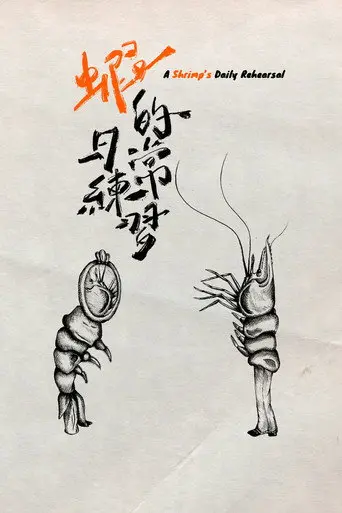 蝦的日常練習
A Shrimp's Daily Rehearsal